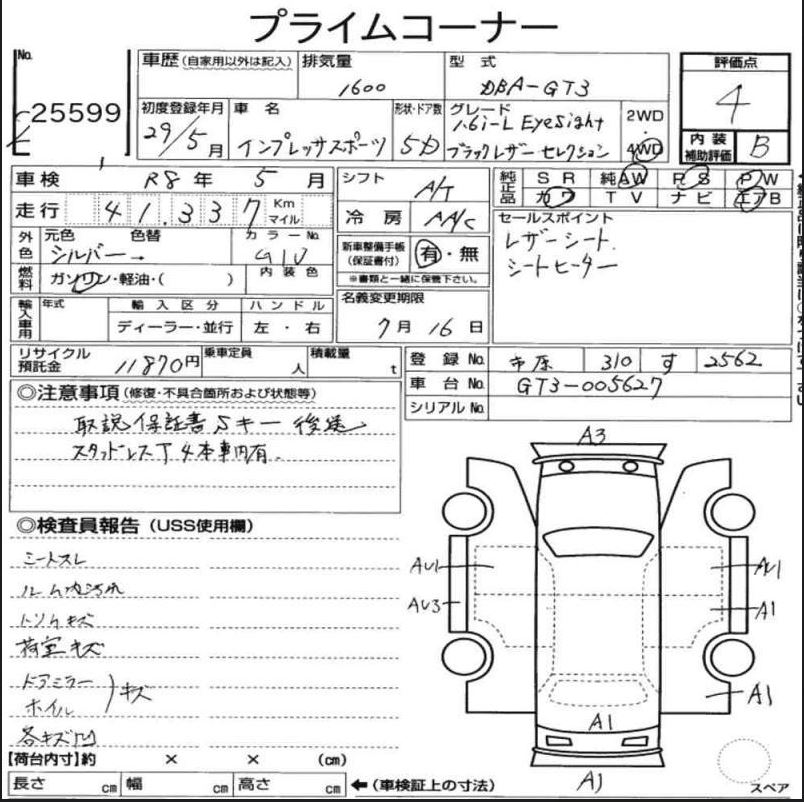 プライムコーナー
No.
25599
車歴(自家用以外は記入)
排気量
1600
型式
DBA-GT3
評価点
4
初度登録年月
29/5月
車名
インプレッサスポーツ
形状・ドア数
5D
グレード
1.6i-L EyeSight
ブラックレザー セレクション
2WD
4WD
内装
補助評価
B
車検
R8年 5月
走行
41,337
Km
マイル
シフト
A/T
冷房
AA/C
純正品
SR
純AW
PS
PW
カワ
TV
ナビ
エアB
外色
元色
色替
シルバー→
カラーNo.
G1U
新車整備手帳
(保証書付)
有・無
※書類と一緒に保管下さい。
セールスポイント
レザーシート.
シートヒーター
燃料
ガソリン・軽油・( )
内装色
名義変更期限
7月 16日
輸入車用
年式
輸入区分
ディーラー・並行
ハンドル
左・右
リサイクル
預託金
11870円
乗車定員
人
積載量
t
登録No.
市原
310
す
2562
車台No.
GT3-005627
シリアルNo.
◎注意事項(修復・不具合箇所および状態等)
取説 保証書 Sキー 後送
スタッドレスT 4本車内有.
◎検査員報告(USS使用欄)
シートスレ
ルーム内汚れ
トリムキズ
荷室キズ
ドアミラー
ホイル
キズ
各キズ凹
A3
AU1
AU3
AU1
A1
A1
A1
A1
スペア
【荷台内寸】約 × × (cm)
長さ cm
幅 cm
高さ cm
←(車検証上の寸法)